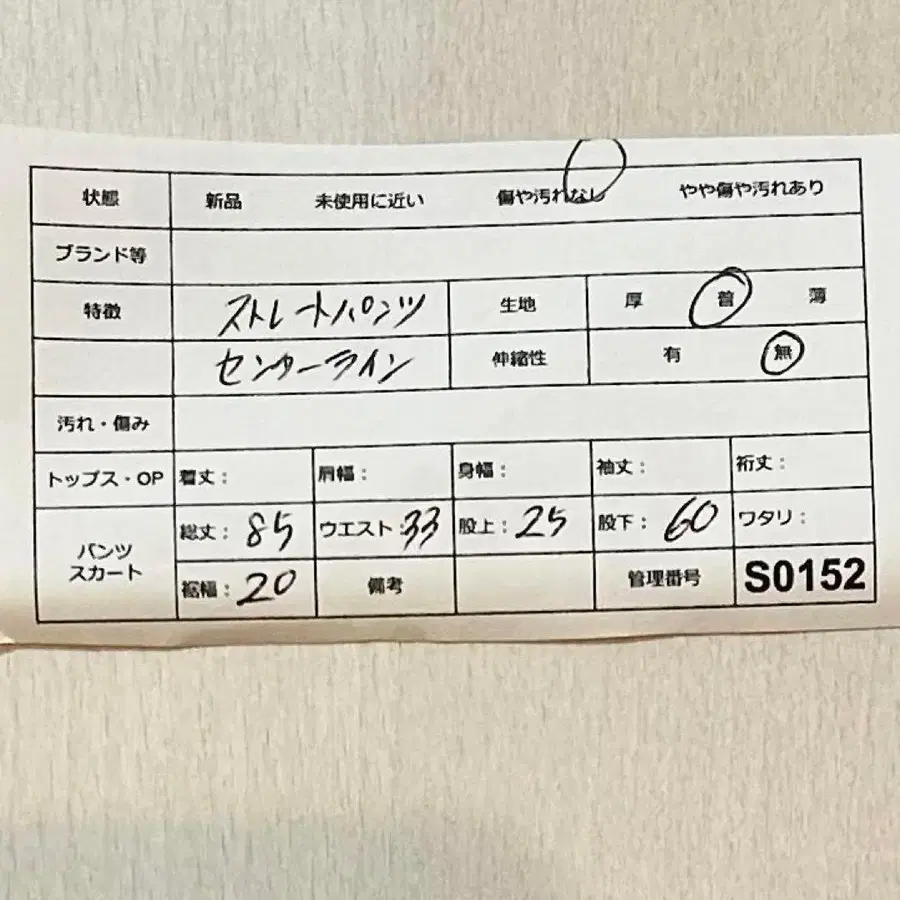 状態 新品 未使用に近い 傷や汚れなし やや傷や汚れあり
ブランド等
特徴 ストレートパンツ 生地 厚 普 薄
センターライン 伸縮性 有 無
汚れ・傷み
トップス・OP 着丈： 肩幅： 身幅： 袖丈： 裄丈：
パンツ スカート 総丈：85 ウエスト：33 股上：25 股下：60 ワタリ：
裾幅：20 備考 管理番号 S0152